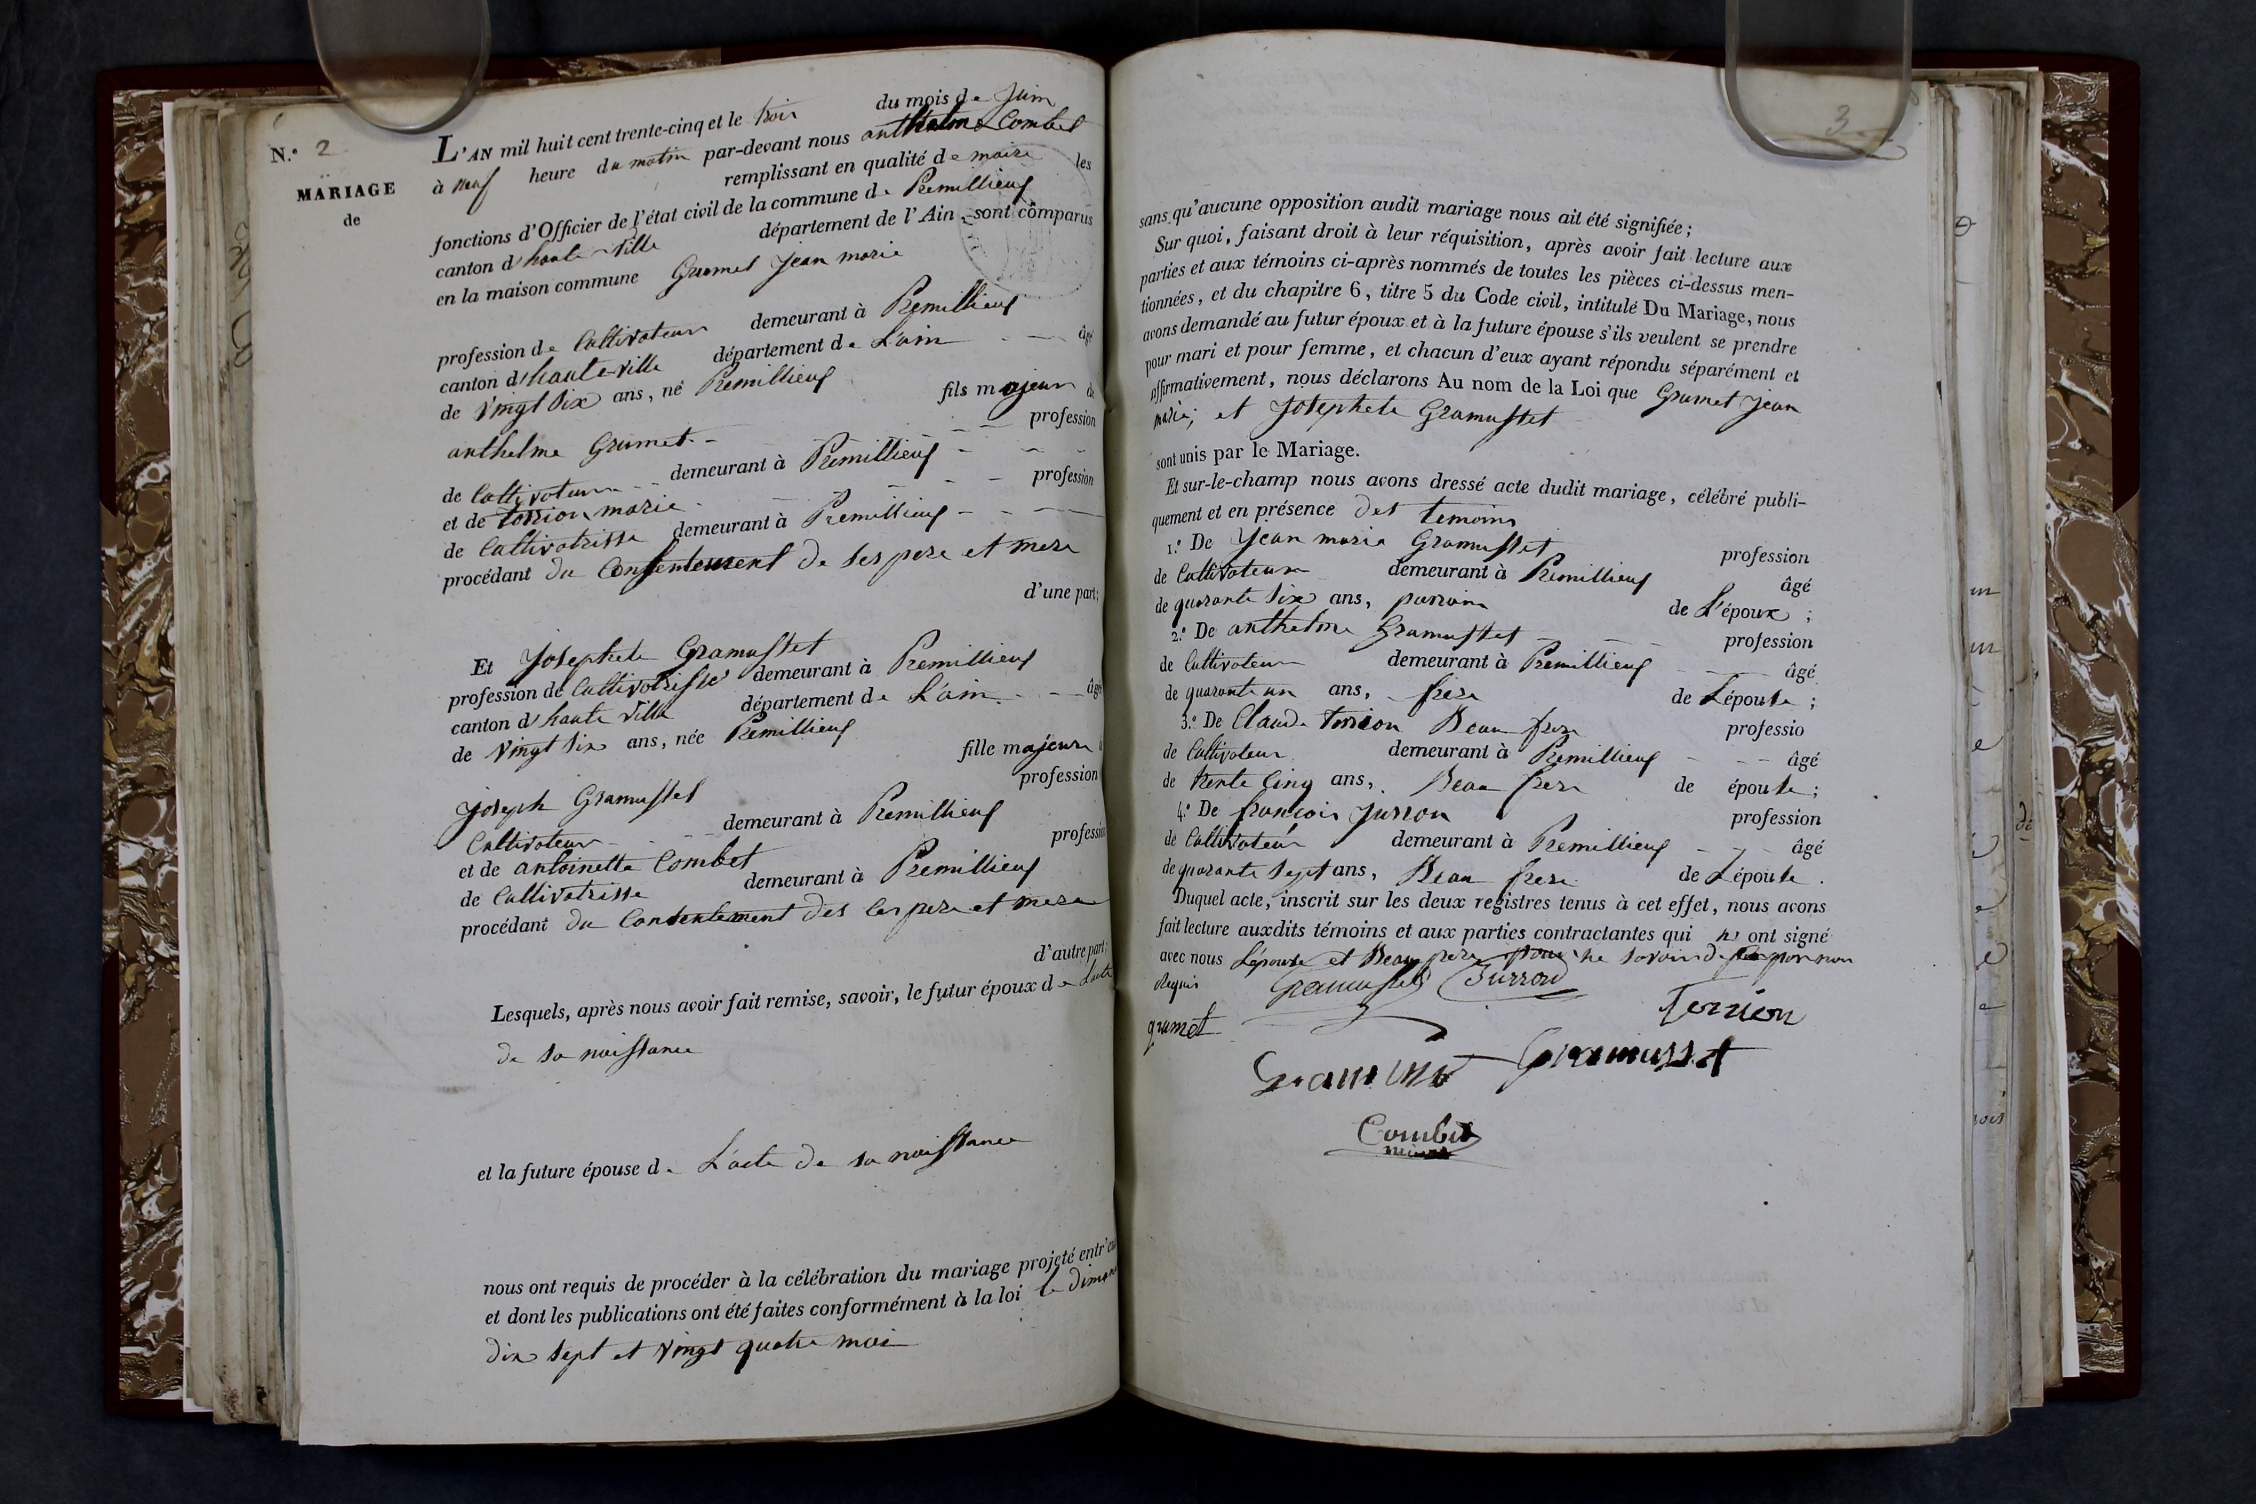 N.º 2
MARIAGE
de
L'AN mil huit cent trente-cinq et le trois du mois de Juin
à neuf heure du matin par-devant nous anthelme Combet
remplissant en qualité de maire les
fonctions d'Officier de l'état civil de la commune de Premillieuf
canton d'haute-ville département de l'Ain, sont comparus
en la maison commune Grumet Jean marie
profession de Cultivateur demeurant à Premillieuf
canton d'haute-ville département de L'ain âgé
de vingt six ans, né Premillieuf fils majeur de
anthelme Grumet profession
de Cultivateur demeurant à Premillieuf
et de torrion marie profession
de Cultivatrisse demeurant à Premillieuf
procédant du Consentement de ses pere et mere
d'une part;
Et Josephete Gramusset
profession de Cultivatrisse demeurant à Premillieuf
canton d'haute ville département de L'ain âgé
de vingt six ans, née Premillieuf fille majeure
Joseph Gramusset profession
Cultivateur demeurant à Premillieuf
et de antoinette Combet profession
de Cultivatrisse demeurant à Premillieuf
procédant du Consentement des ces pere et mere
d'autre part;
Lesquels, après nous avoir fait remise, savoir, le futur époux de L'acte
de sa naissance
et la future épouse de L'acte de sa naissance
nous ont requis de procéder à la célébration du mariage projeté entr'eux
et dont les publications ont été faites conformément à la loi le diman
dix sept et vingt quatre mai
3
sans qu'aucune opposition audit mariage nous ait été signifiée;
Sur quoi, faisant droit à leur réquisition, après avoir fait lecture aux
parties et aux témoins ci-après nommés de toutes les pièces ci-dessus men-
tionnées, et du chapitre 6, titre 5 du Code civil, intitulé Du Mariage, nous
avons demandé au futur époux et à la future épouse s'ils veulent se prendre
pour mari et pour femme, et chacun d'eux ayant répondu séparément et
affirmativement, nous déclarons Au nom de la Loi que Grumet Jean
marie, et Josephete Gramusset
sont unis par le Mariage.
Et sur-le-champ nous avons dressé acte dudit mariage, célébré publi-
quement et en présence des temoins
1.º De Jean marie Gramusset profession
de Cultivateur demeurant à Premillieuf âgé
de quarante six ans, parrain de L'époux ;
2.º De anthelme Gramusset profession
de Cultivateur demeurant à Premillieuf âgé
de quarante un ans, frere de L'épouse ;
3.º De Claude torrion Beau frere professio
de Cultivateur demeurant à Premillieuf âgé
de trente Cinq ans, Beau frere de épouse ;
4.º De françois Jurron profession
de Cultivateur demeurant à Premillieuf âgé
de quarante sept ans, Beau frere de L'épouse .
Duquel acte, inscrit sur les deux registres tenus à cet effet, nous avons
fait lecture auxdits témoins et aux parties contractantes qui ont signé
avec nous L'épouse et Beau pere pour ne savoir de
Requis
Gramusset Jurron
Torrion
grumet
Gramusset
Combet
maire